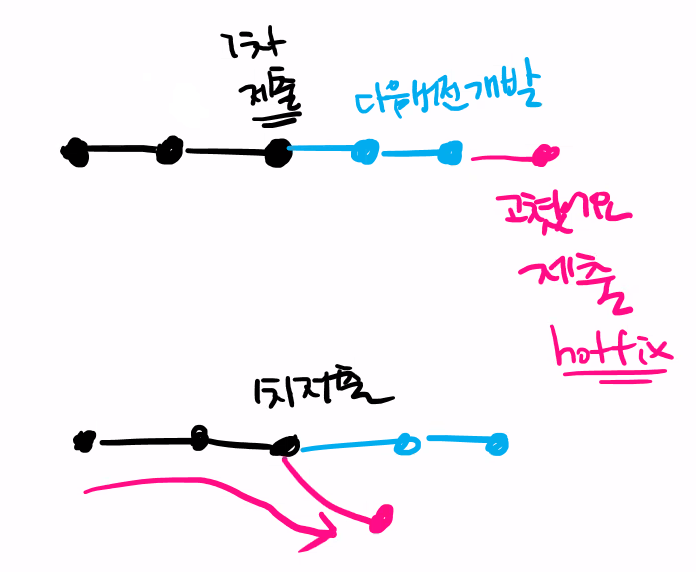 1차
제출
다음버전개발
고쳤어요
제출
hotfix
1차제출